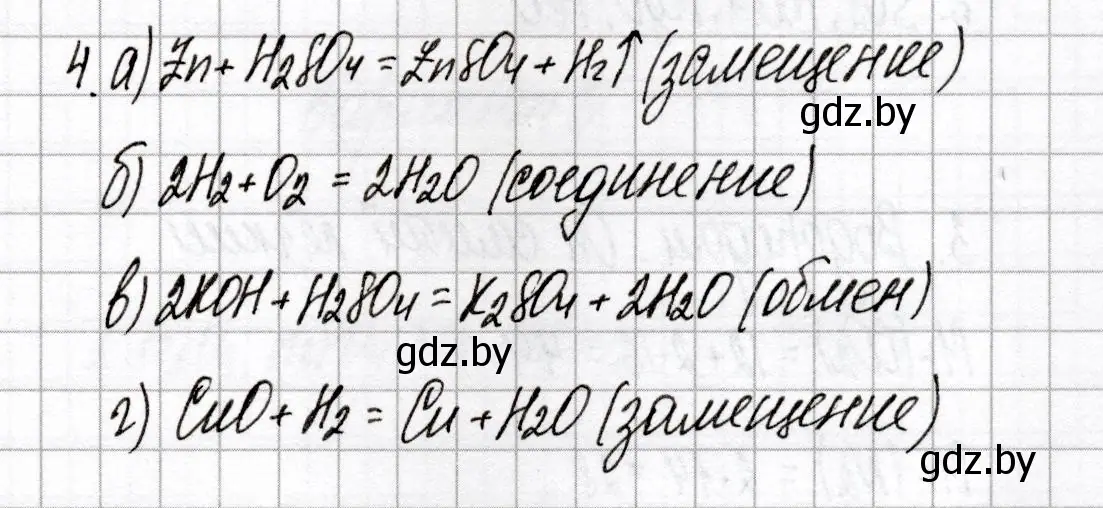 4. а) Zn + H₂SO₄ = ZnSO₄ + H₂↑ (замещение)
gdz.by
б) 2H₂ + O₂ = 2H₂O (соединение)
в) 2KOH + H₂SO₄ = K₂SO₄ + 2H₂O (обмен)
gdz.by
г) CuO + H₂ = Cu + H₂O (замещение)
gdz.by